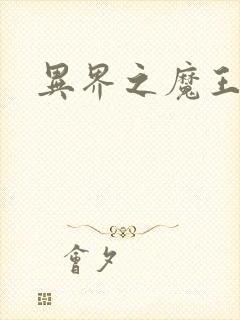 異界之魔王
會夕